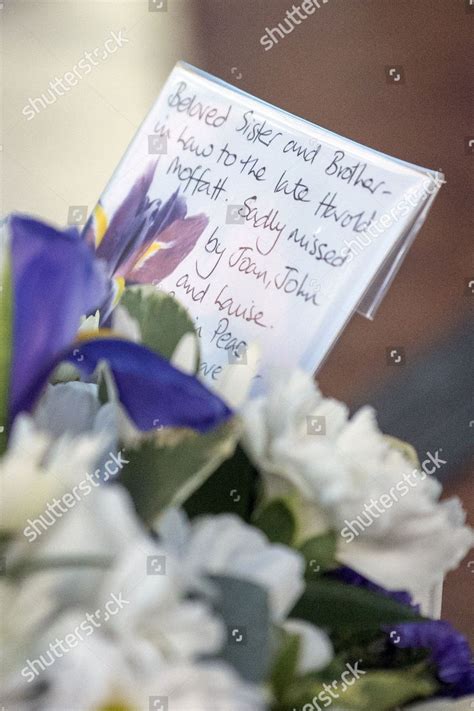 Beloved Sister and Brother-
in Law to the late Harold
Moffatt. Sadly missed
by Joan, John
and Louise.
in Peace
shutterstock
shutterstock
shutterstock
shutterstock
shutterstock
shutterstock
shutterstock
shutterstock